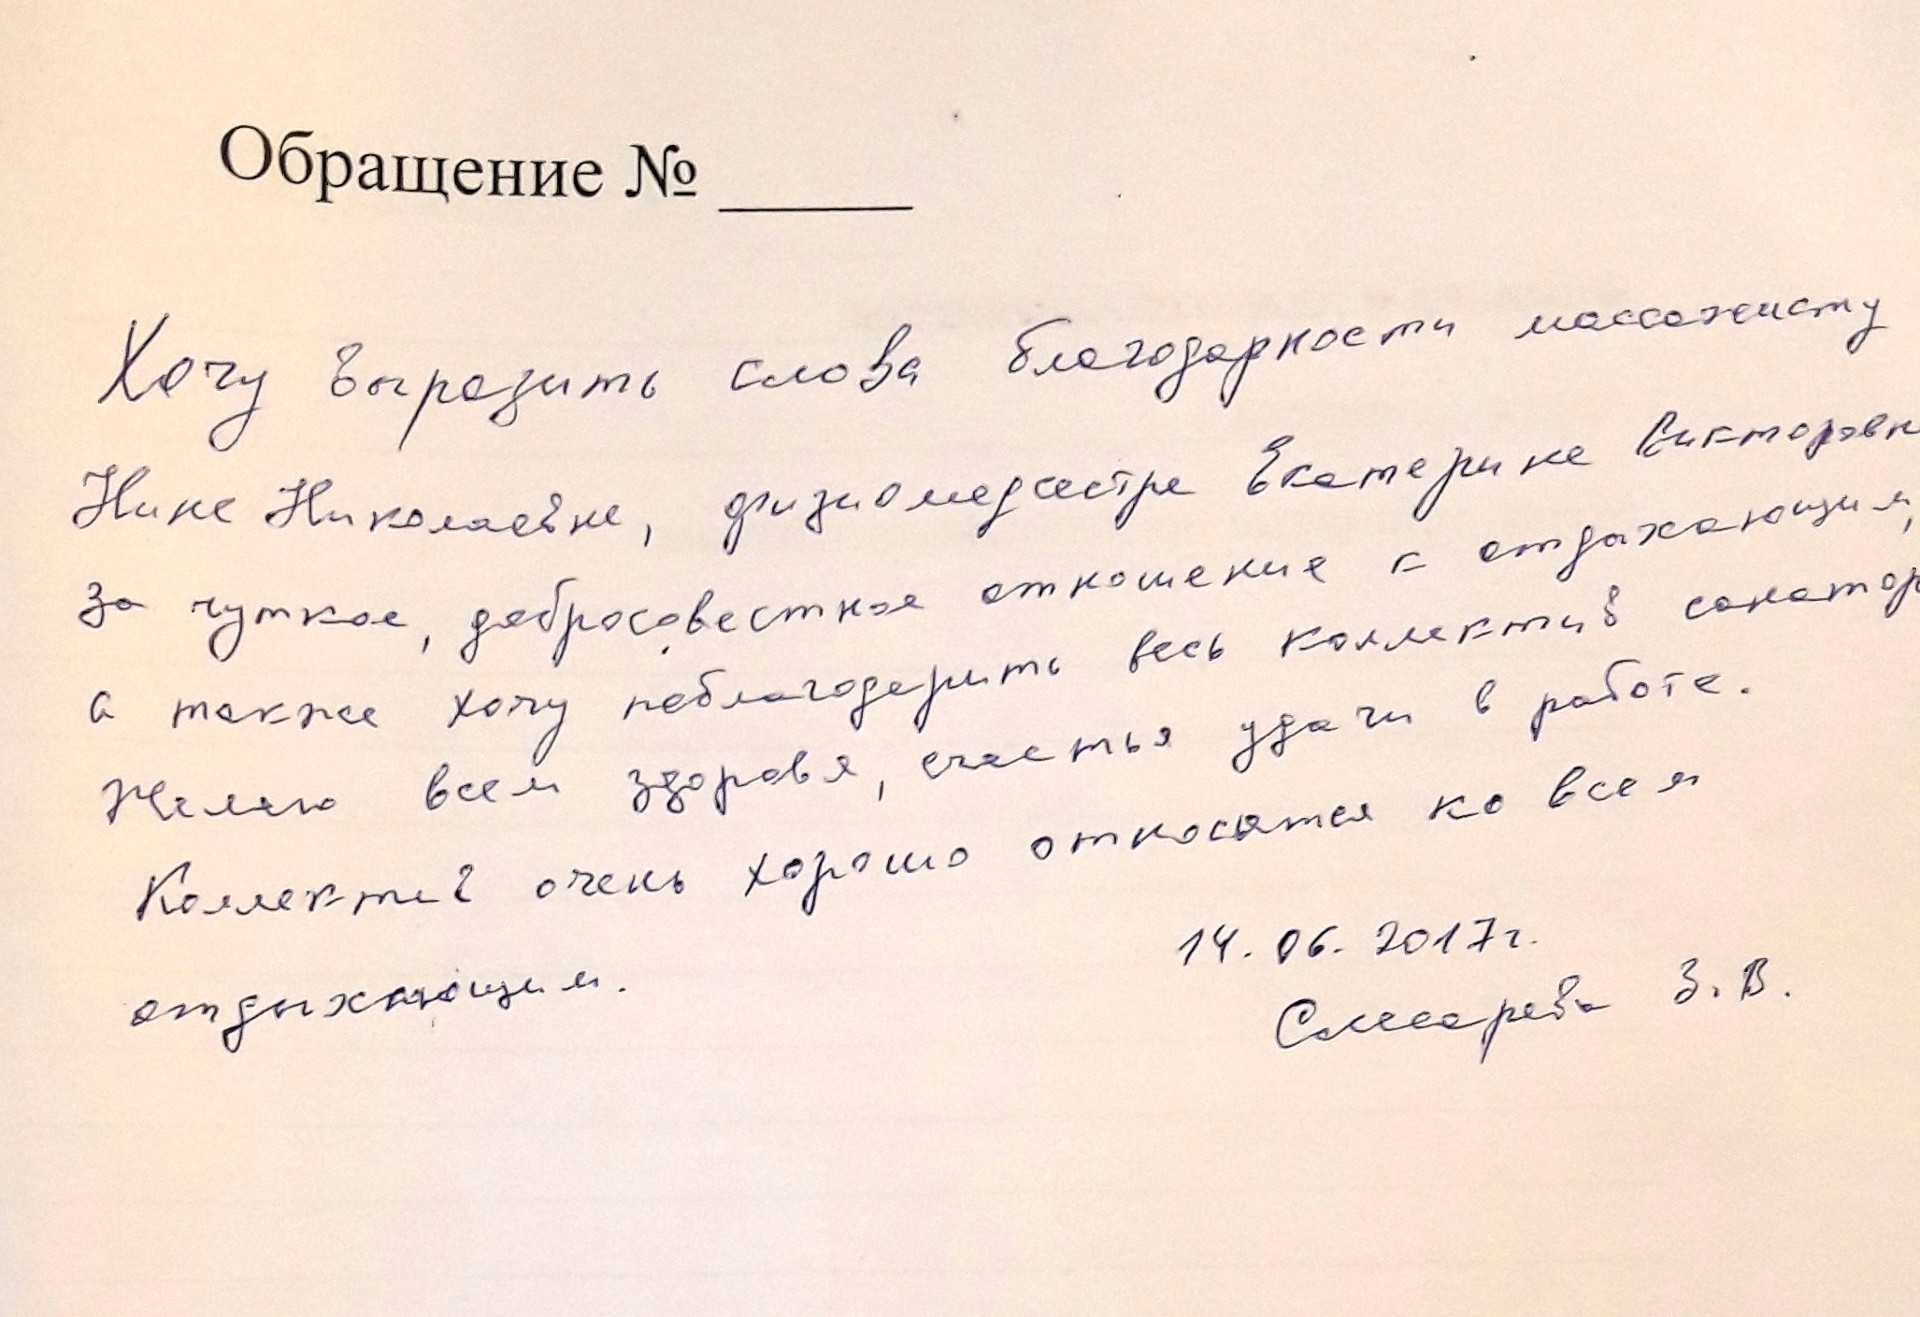 Обращение № _____
Хочу выразить слова благодарности массажисту
Нине Николаевне, физиомедсестре Екатерине Викторовн
за чуткое, добросовестное отношение к отдыхающим,
а также хочу поблагодарить весь коллектив санатор
Желаю всем здоровя, счастья удачи в работе.
Коллектив очень хорошо относятся ко всем
отдыхающим.
14.06.2017г.
Слесарева З.В.